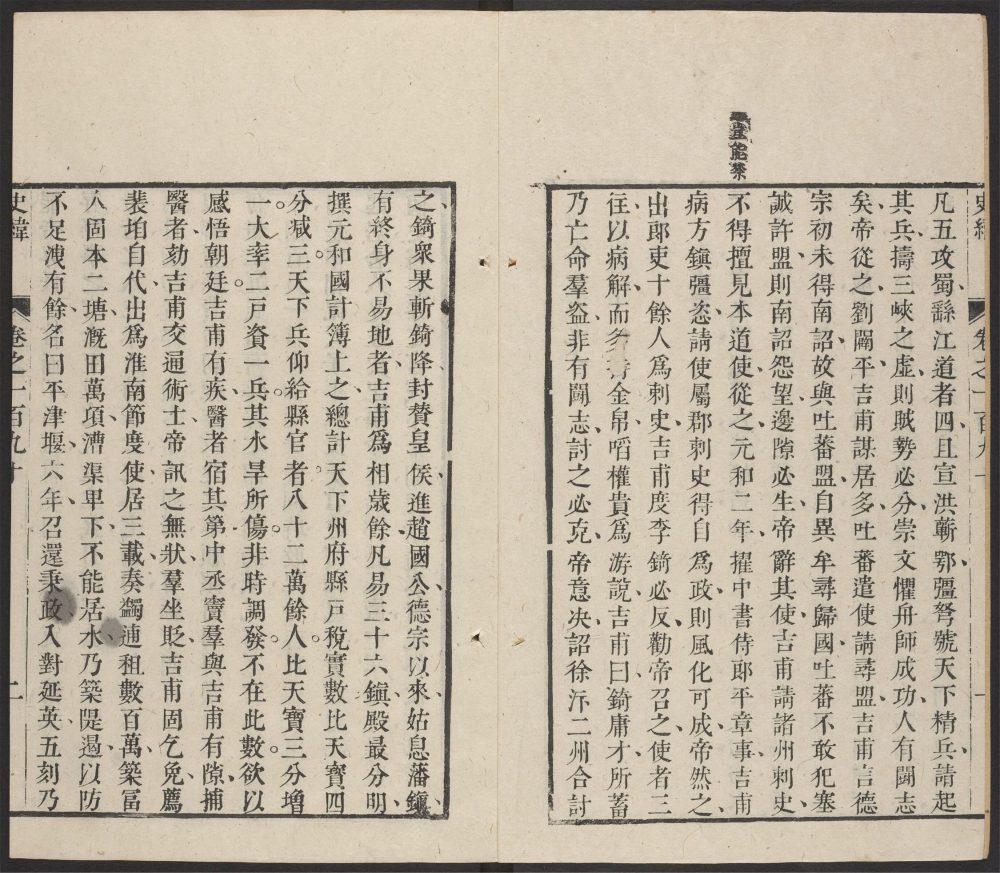 史緯
卷之一百九十
一
凡五攻蜀繇江道者四且宣洪蘄鄂彊弩號天下精兵請起
其兵擣三峽之虛則賊勢必分崇文懼舟師成功人有鬭志
矣帝從之劉闢平吉甫謀居多吐蕃遣使請尋盟吉甫言德
宗初未得南詔故與吐蕃盟自異牟尋歸國吐蕃不敢犯塞
誠許盟則南詔怨望邊隙必生帝辭其使吉甫請諸州刺史
不得擅見本道使從之元和二年擢中書侍郎平章事吉甫
病方鎮彊恣請使屬郡刺史得自爲政則風化可成帝然之
出郎吏十餘人爲刺史吉甫度李錡必反勸帝召之使者三
往以病解而多持金帛啗權貴爲游說吉甫曰錡庸才所蓄
乃亡命羣盜非有鬭志討之必克帝意决詔徐汴二州合計
之錡衆果斬錡降封贊皇侯進趙國公德宗以來姑息藩鎮
有終身不易地者吉甫爲相歲餘凡易三十六鎮殿最分明
撰元和國計簿上之總計天下州府縣戸稅實數比天寶四
分减三天下兵仰給縣官者八十二萬餘人比天寶三分增
一大率二戸資一兵其水旱所傷非時調發不在此數欲以
感悟朝廷吉甫有疾醫者宿其第中丞竇羣與吉甫有隙捕
醫者劾吉甫交通術士帝訊之無狀羣坐貶吉甫固乞免薦
裴垍自代出爲淮南節度使居三載奏蠲逋租數百萬築冨
人固本二塘漑田萬項漕渠卑下不能居水乃築隄遏以防
不足洩有餘名曰平津堰六年召還秉政入對延英五刻乃
史緯
卷之一百九十
二